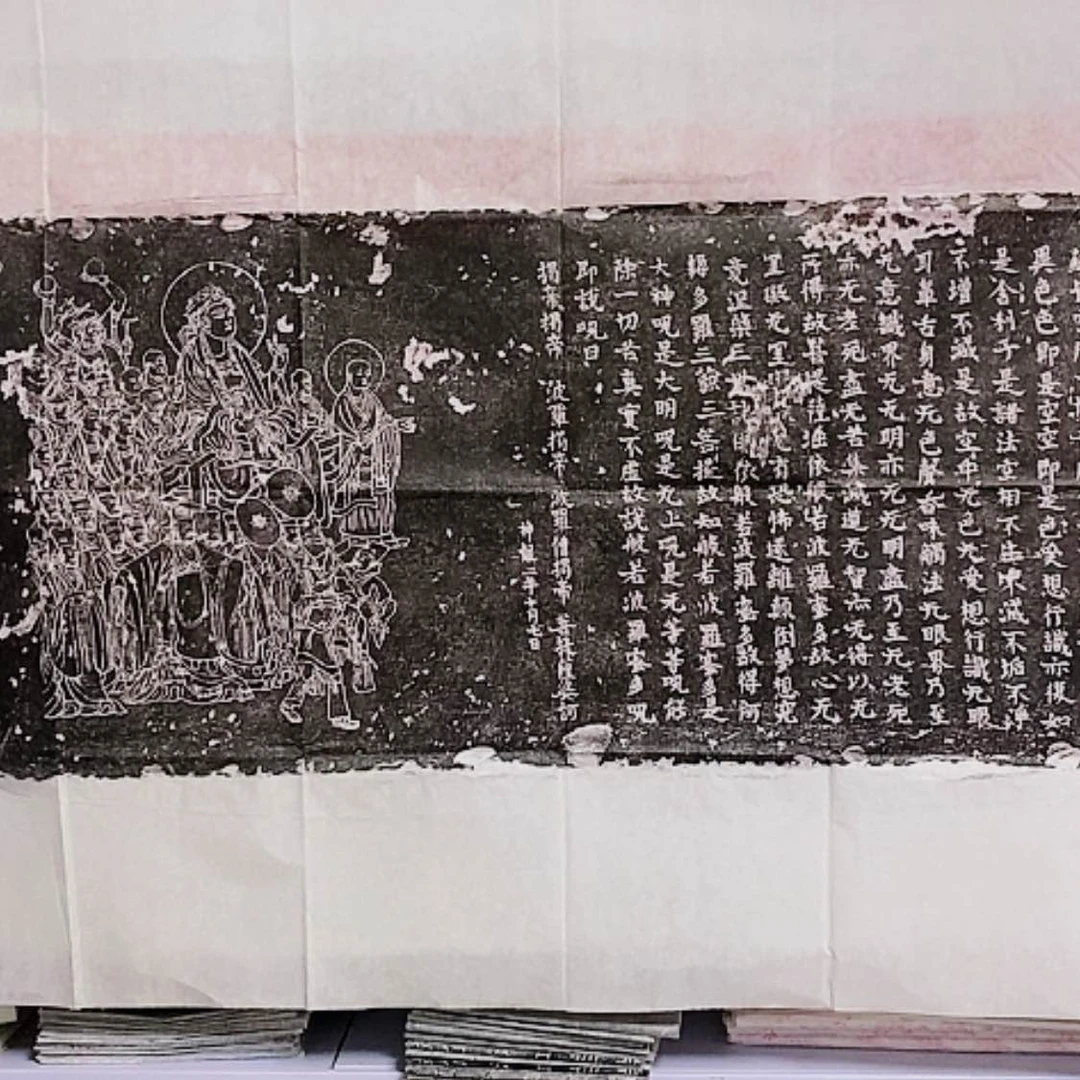 異色色即是空空即是色受想行識亦復如
是舍利子是諸法空相不生不滅不垢不淨
不增不減是故空中无色无受想行識无眼
耳鼻舌身意无色聲香味觸法无眼界乃至
无意識界无无明亦无无明盡乃至无老死
亦无老死盡无苦集滅道无智亦无得以无
所得故菩提薩埵依般若波羅蜜多故心无
罣礙无罣有恐怖遠離顛倒夢想究
竟涅槃三依般若波羅蜜多故得阿
耨多羅三藐三菩提故知般若波羅蜜多是
大神呪是大明呪是无上呪是无等等呪能
除一切苦真實不虛故說般若波羅蜜多呪
即說呪曰
揭帝揭帝 波羅揭帝 波羅僧揭帝 菩提薩婆訶
神龍二年七日